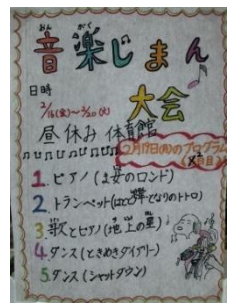 おん がく
音楽じまん
大会
日時
2/16(金)〜2/20(火)
昼休み 体育館
2月17日(火)のプログラム
1. ピアノ(のロンド)
2. トランペット(となりのトトロ)
3. 歌とピアノ(地上の星)
4. ダンス(ときめきダイアリー)
5. ダンス(シャットダウン)